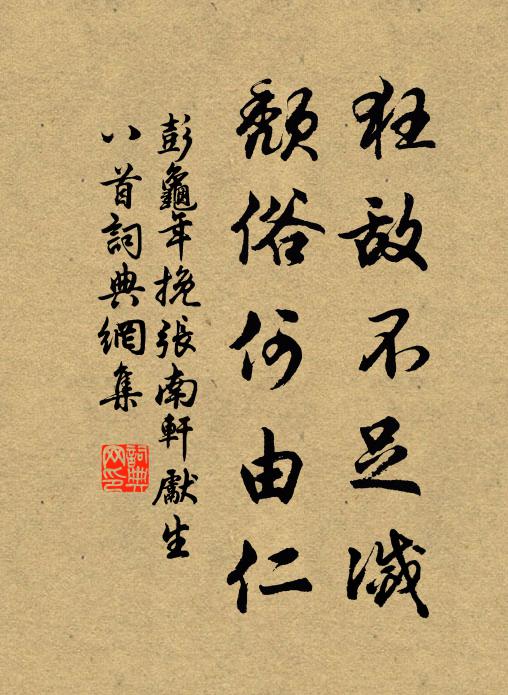 狂敌不足滅
頽俗何由仁
彭龜年挽張南軒獻生
八首詞典網集
詞典网印